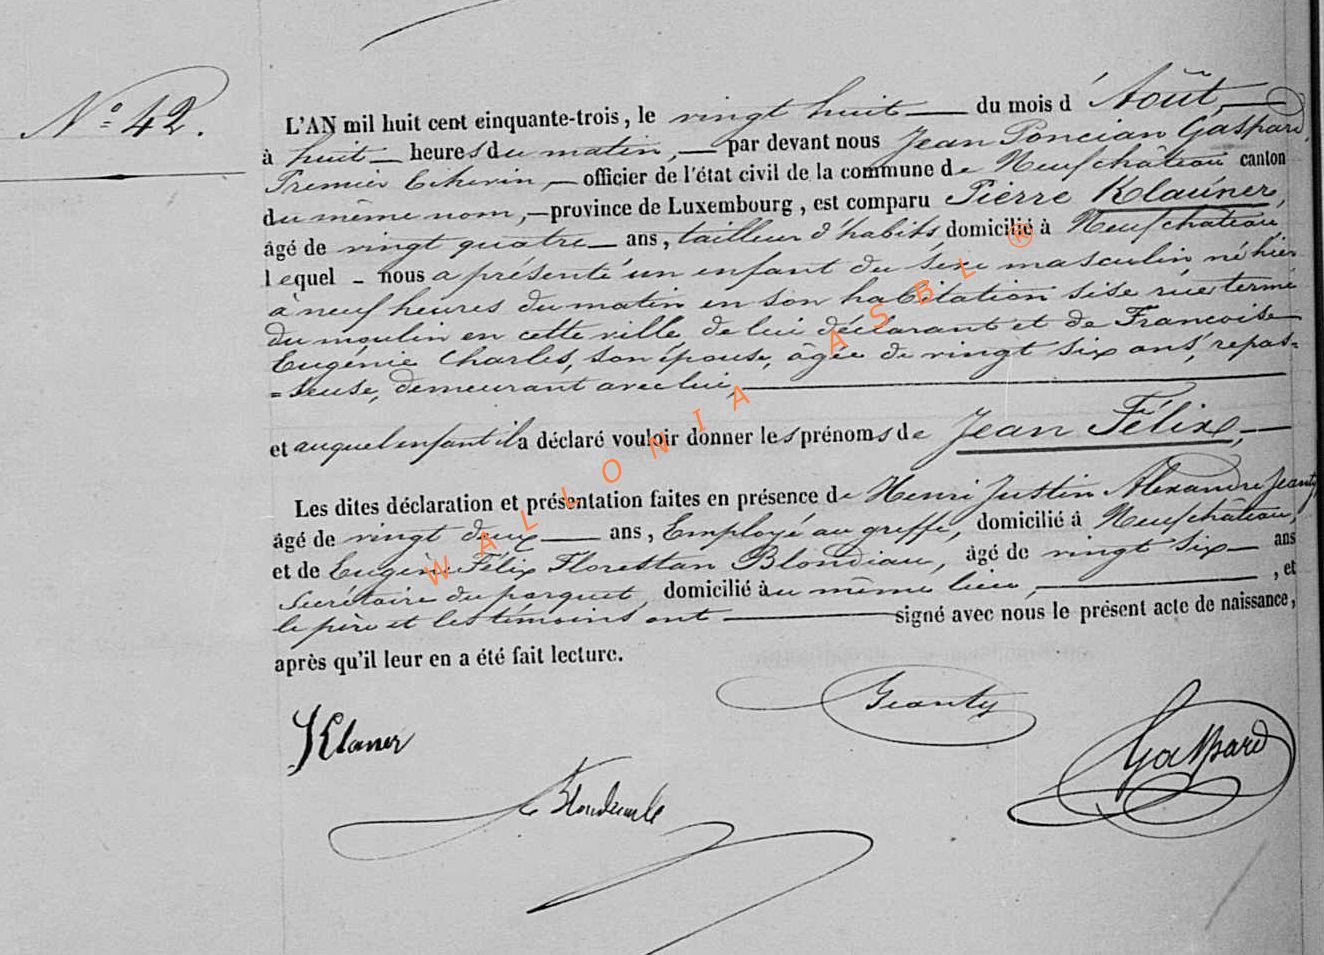 N° 42.
L'AN mil huit cent cinquante-trois, le vingt huit du mois d'Août,
à huit heures du matin, par devant nous Jean Poncian Gaspard,
Premier Echevin, officier de l'état civil de la commune de Neufchâteau canton
du même nom, province de Luxembourg, est comparu Pierre Klauner,
âgé de vingt quatre ans, tailleur d'habits, domicilié à Neufchateau
lequel nous a présenté un enfant du sexe masculin, né hier
à neuf heures du matin en son habitation sise rue terme
du moulin en cette ville de lui déclarant et de Françoise
Eugénie Charles, son épouse, âgée de vingt six ans, repas=
=seuse, demeurant avec lui,
et auquel enfant il a déclaré vouloir donner les prénoms de Jean Félix,
Les dites déclaration et présentation faites en présence de Henri Justin Alexandre Jeanty
âgé de vingt deux ans, Employé au greffe, domicilié à Neufchâteau,
et de Eugène Félix Florestan Blondiau, âgé de vingt six ans
Secrétaire du parquet, domicilié au même lieu, , et
le père et les témoins ont signé avec nous le présent acte de naissance,
après qu'il leur en a été fait lecture.
Jeanty
Klaner
Gaspard
WALLONIA ASBL ®